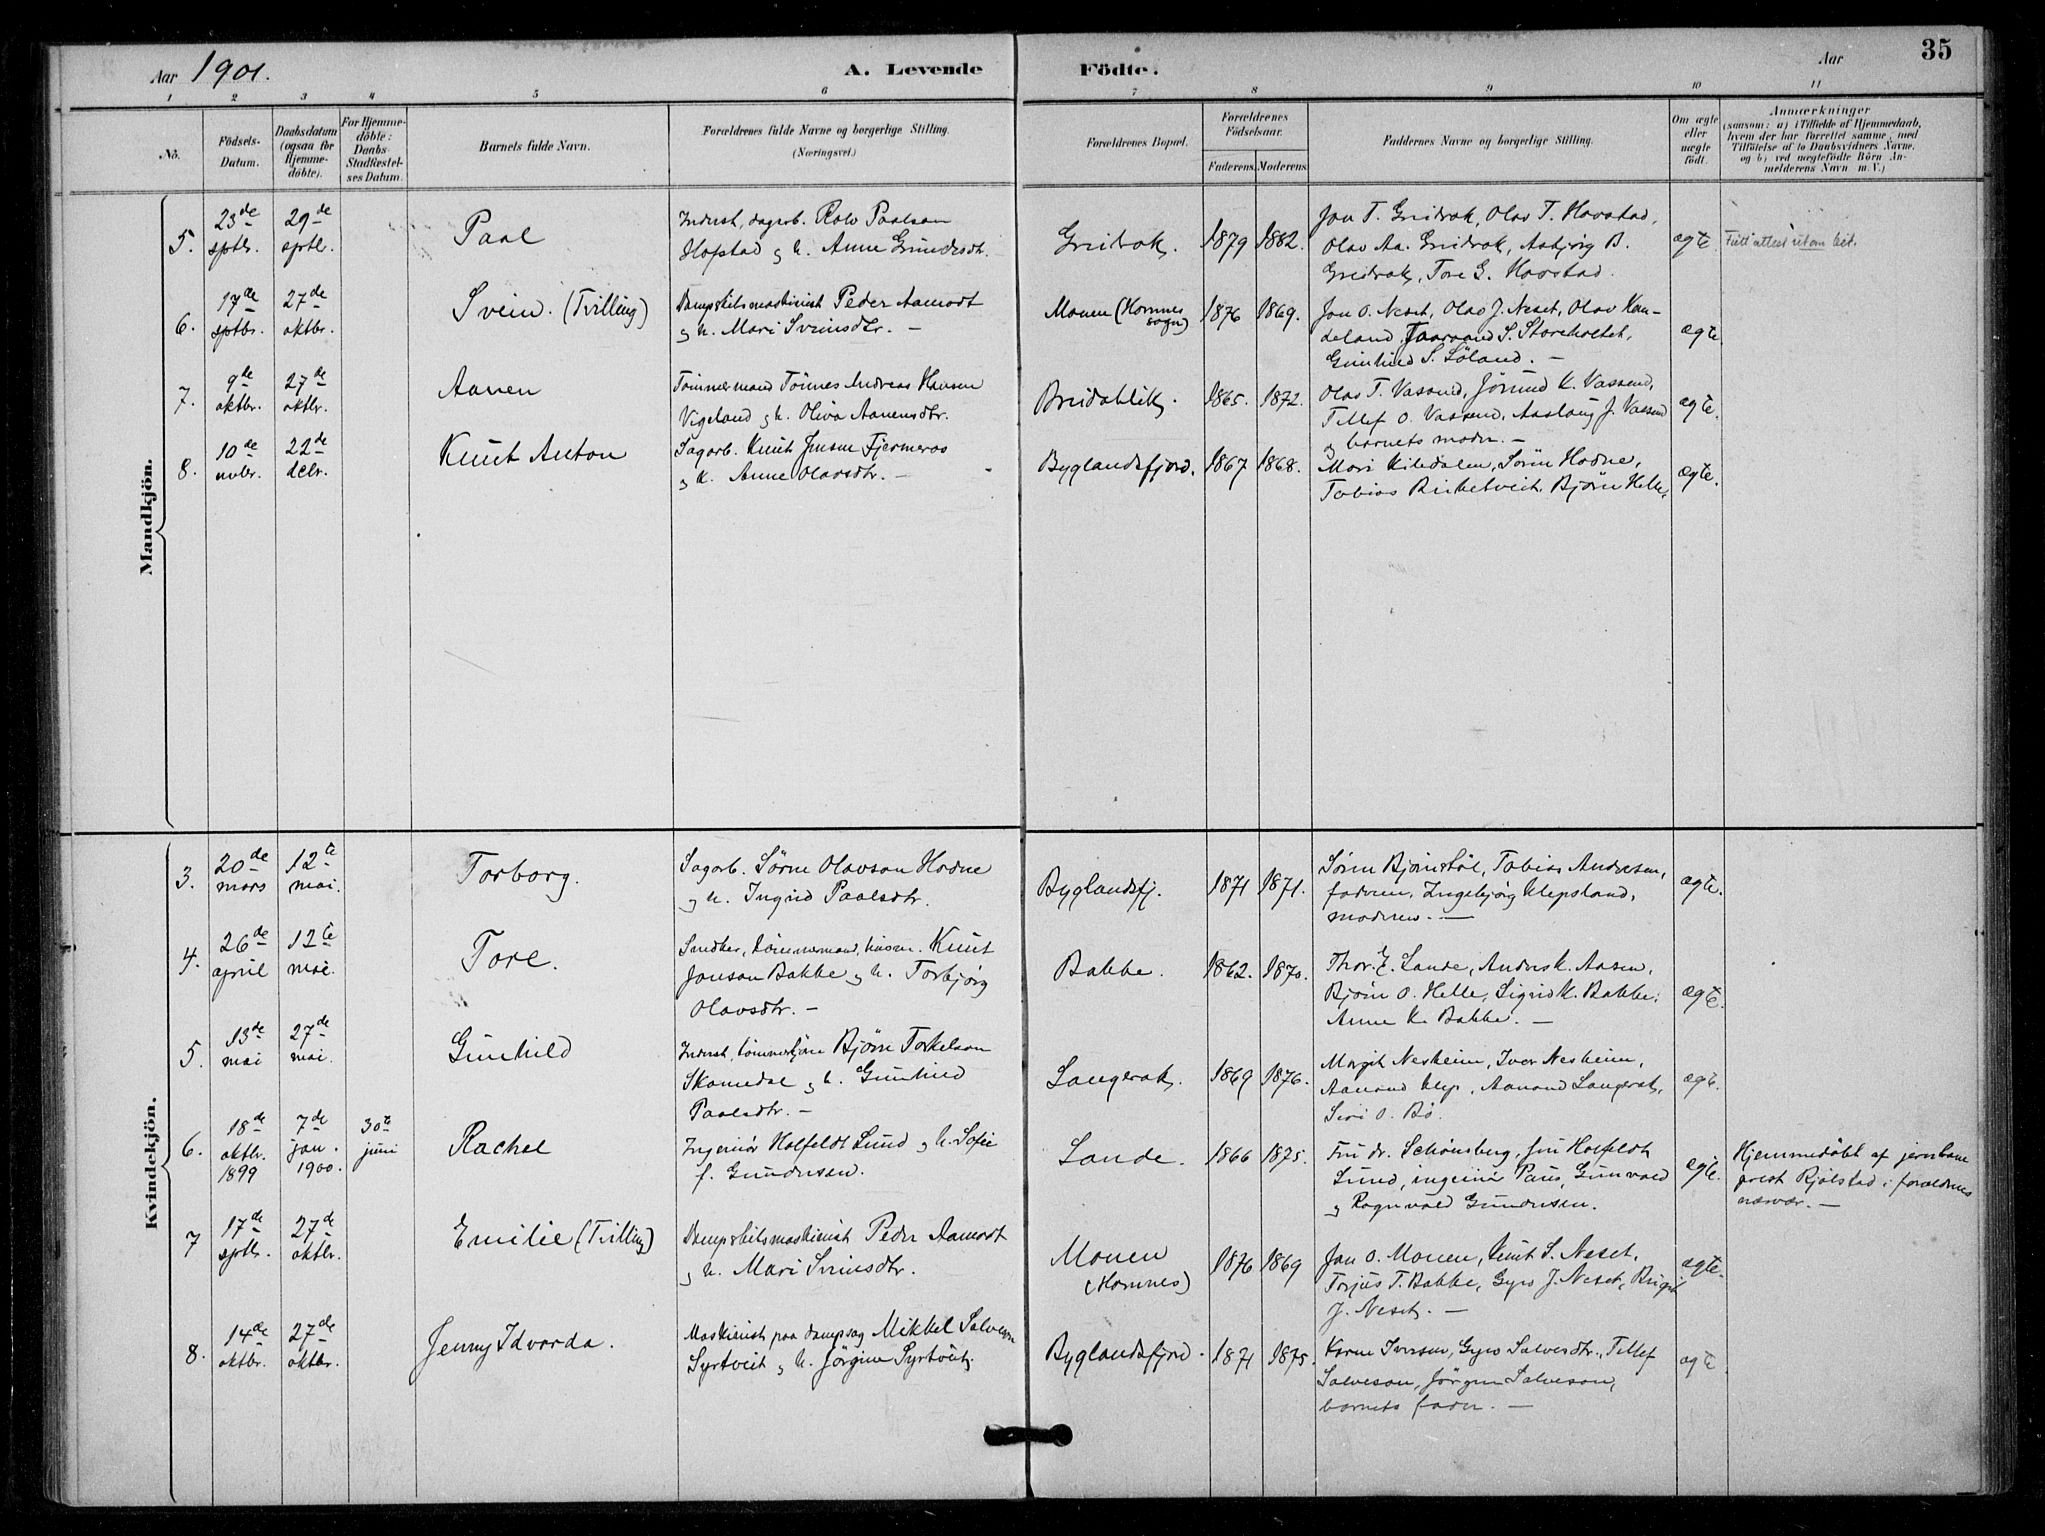 Aar 1901.
A. Levende Födte.
Aar
35
1 2 3 4 5 6 7 8 9 10 11
No.
Födsels-Datum.
Daabsdatum (ogsaa for Hjemme-döbte).
For Hjemme-döbte: Daabs-Stadfæstel-ses Datum.
Barnets fulde Navn.
Forældrenes fulde Navne og borgerlige Stilling.
(Næringsvei.)
Forældrenes Bopæl.
Forældrenes Födselsaar.
Faderens. Moderens.
Faddernes Navne og borgerlige Stilling.
Om ægte eller uægte födt.
Anmærkninger
(saasom: a) i Tilfælde af Hjemmedaab, hvem der har forrettet samme, med Tilföielse af to Daabsvidners Navne, og b) ved uægtefödte Börn An-melderens Navn m. V.)
Mandkjön.
5. 23de sptbr. 29de sptbr. Paal
Inderst, dagarb. Rolv Paalson
Hofstad og h. Anne Gundersdtr.
Greidvok. 1879 1882.
Jon T. Greidvok, Olav T. Havstad,
Olav Aa. Greidvok, Asbjørg B.
Greidvok, Tore G. Havstad.
ægte
6. 17de sptbr. 27de oktbr. Svein. (Tvilling)
Dampskibsmaskinist Peder Aamodt
og h. Mari Sveinsdtr. —
Monen (Hornnes sogn) 1876 1869.
Jon O. Neset, Olav J. Neset, Olav
deland, S.
Gunhild S. Löland. —
ægte
7. 9de oktbr. 27de oktbr. Aanen
Tömmermand Tönnes Andreas Hansen
Vigeland og h. Oliva Aanensdtr.
Breidablik. 1865. 1872.
Olav T. Vassend, Jørund K. Vassend,
Tellef O. Vassend, Aaslaug J. Vassend
og barnets moder. —
ægte.
8. 10de nvbr. 22de dcbr. Knut Anton
Sagarb. Knut Jensen Fjermeros
og h. Anne Olavsdtr. —
Byglandsfjord. 1867 1868.
Mari Kiledalen, Sören Hodne,
Tobias Birketveit, Björn Helle.
ægte.
Kvindekjön.
3. 20de mars 12te mai. Torborg.
Sagarb. Sörne Olavson Hodne
og h. Ingrid Paalsdtr.
Byglandsfj. 1871 1871.
Sören Bjørnstöl, Tobias Andresen,
faderen, Ingebjørg Klepsland,
moderen. —
ægte.
4. 26de april 12te mai. Tore.
Snedker, tömmermand, husm. Knut
Jonson Bakke og h. Torbjørg
Olavsdtr. —
Bakke. 1862. 1870.
Thor. E. Lande, Anders K. Aasen,
Bjørn O. Helle, Sigrid K. Bakke,
Anne K. Bakke. —
ægte.
5. 13de mai 27de mai. Gunhild
Inderst, tömmerkjörer Bjørn Torkelson
Skomedal og h. Gunhild
Paalsdtr. —
Langerak. 1869 1876.
Margit Neskeim, Iver Neskeim,
Aanund Klep, Aanund Langerak,
Siri O. Bö.
ægte.
6. 18de oktbr. 1899 7de jan. 1900. 30te juni Rachel
Ingeniør Holfeldt Lund og h. Sofie
f. Gundersen.
Lande. 1866 1875.
Fru dr. Schönsberg, fru Holfeldt
Lund, ingeniør Paus, Gunvald
og Ragnvald Gundersen.
ægte.
Hjemmedöbt af jernbane
prest Rjölstad i forældrenes
nærvær. —
7 17de sptbr. 27de oktbr. Emilie (Tvilling)
Dampskibsmaskinist Peder Aamodt
og h. Mari Sveinsdtr.
Monen
(Hornnes) 1876 1869
Jon O. Monen, Knut S. Neset,
Torjus T. Bakke, Gyro J. Neset, Birgit
J. Neset. —
ægte.
8. 14de oktbr. 27de oktbr. Jenny Idvarda.
Maskinist paa dampsag Mikkel Salveson
Syrtveit og h. Jörgine Syrtveit.
Byglandsfjord. 1871 1875.
Karen Iversen, Gyro Salvesdtr., Tellef
Salveson, Jörgen Salveson,
barnets fader. —
ægte